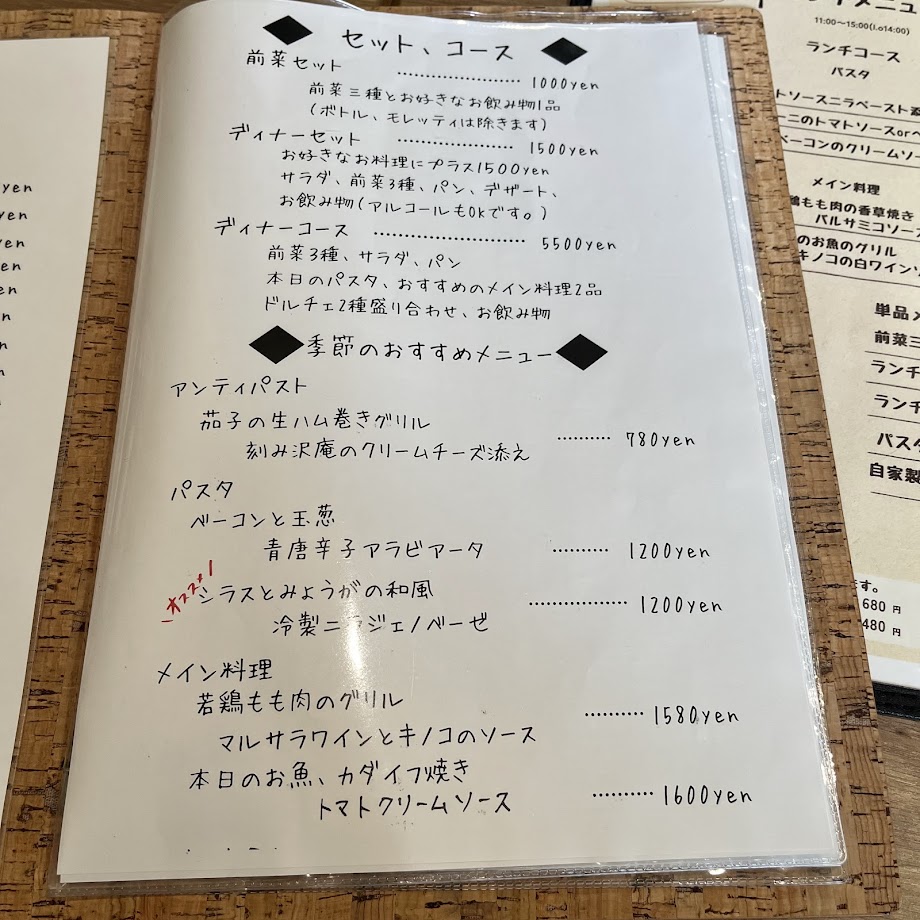 セット、コース
前菜セット ………………… 1000yen
前菜三種とお好きなお飲み物1品
(ボトル、モレッティは除きます)
ディナーセット ………………… 1500yen
お好きなお料理にプラス1500yen
サラダ、前菜3種、パン、デザート、
お飲み物(アルコールもOKです。)
ディナーコース ………………… 5500yen
前菜3種、サラダ、パン
本日のパスタ、おすすめのメイン料理2品
ドルチェ2種盛り合わせ、お飲み物
季節のおすすめメニュー
アンティパスト
茄子の生ハム巻きグリル
刻み沢庵のクリームチーズ添え ………… 780yen
パスタ
ベーコンと玉葱
青唐辛子アラビアータ ………… 1200yen
オススメ!
シラスとみょうがの和風
冷製ニラジェノベーゼ ………… 1200yen
メイン料理
若鶏もも肉のグリル
マルサラワインとキノコのソース ………… 1580yen
本日のお魚、カダイフ焼き
トマトクリームソース ………… 1600yen
yen
yen
yen
yen
メニュー
11:00〜15:00(l.o14:00)
ランチコース
パスタ
トソースニラペースト添
ーニのトマトソースorペ
ベーコンのクリームソー
メイン料理
鶏もも肉の香草焼き
バルサミコソー
のお魚のグリル
キノコの白ワインソ
単品メ
前菜三
ランチ
ランチ
パスタ
自家製
ます。
680 円
480 円